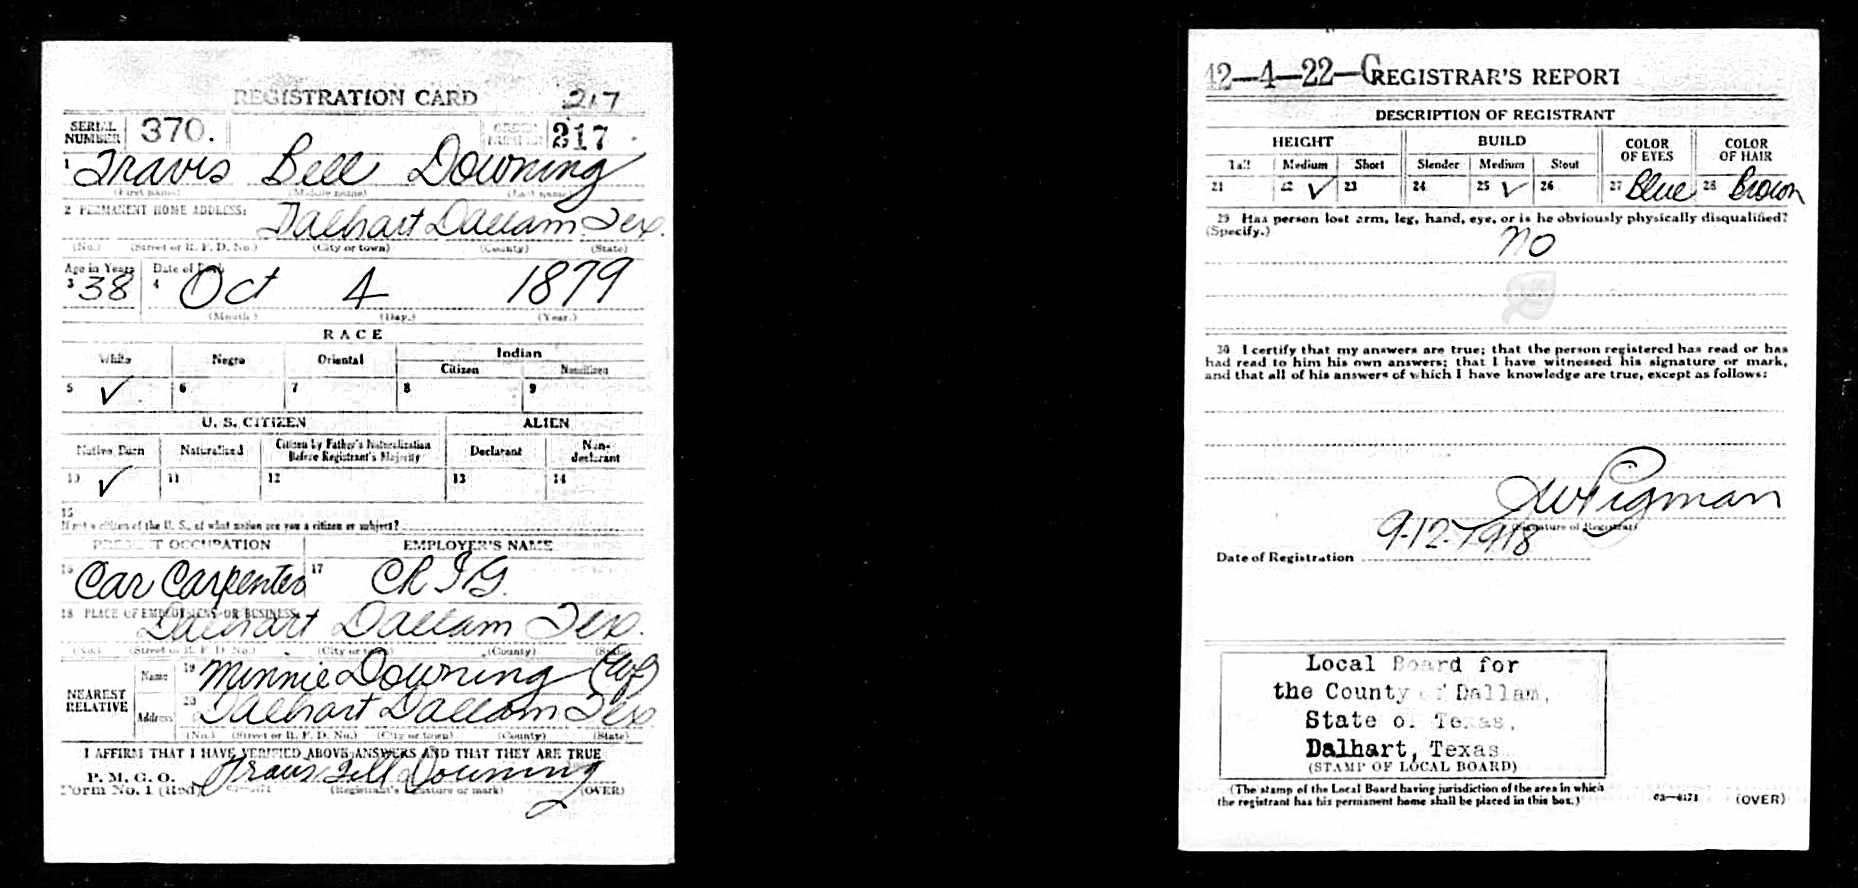 REGISTRATION CARD 217
SERIAL NUMBER 370. ORDER NUMBER 217
1 Travis Bell Downing
(First name) (Middle name) (Last name)
2 PERMANENT HOME ADDRESS:
Dalhart Dallam Tex.
(No.) (Street or R. F. D. No.) (City or town) (County) (State)
Age in Years Date of Birth
3 38 4 Oct 4 1879
(Month.) (Day.) (Year.)
RACE
White Negro Oriental Indian
Citizen Noncitizen
5 ✓ 6 7 8 9
U. S. CITIZEN ALIEN
Native Born Naturalized Citizen by Father's Naturalization Before Registrant's Majority Declarant Non-declarant
10 ✓ 11 12 13 14
15
If not a citizen of the U. S., of what nation are you a citizen or subject?
PRESENT OCCUPATION EMPLOYER'S NAME
16 Car Carpenter 17 C R I G.
18 PLACE OF EMPLOYMENT OR BUSINESS:
Dalhart Dallam Tex.
(No.) (Street or R. F. D. No.) (City or town) (County) (State)
NEAREST RELATIVE
Name 19 Minnie Downing
Address 20 Dalhart Dallam Tex
(No.) (Street or R. F. D. No.) (City or town) (County) (State)
I AFFIRM THAT I HAVE VERIFIED ABOVE ANSWERS AND THAT THEY ARE TRUE
P. M. G. O.
Form No. 1 (Red) Travis Bell Downing
(Registrant's signature or mark) (OVER)
42—4—22—C REGISTRAR'S REPORT
DESCRIPTION OF REGISTRANT
HEIGHT BUILD COLOR OF EYES COLOR OF HAIR
Tall Medium Short Slender Medium Stout
21 22 ✓ 23 24 25 ✓ 26 27 Blue 28 Brown
29 Has person lost arm, leg, hand, eye, or is he obviously physically disqualified?
(Specify.) no
30 I certify that my answers are true; that the person registered has read or has
had read to him his own answers; that I have witnessed his signature or mark,
and that all of his answers of which I have knowledge are true, except as follows:
Pigman
(Signature of Registrar)
Date of Registration 9-12-1918
Local Board for
the County of Dallam,
State of Texas,
Dalhart, Texas
(STAMP OF LOCAL BOARD)
(The stamp of the Local Board having jurisdiction of the area in which
the registrant has his permanent home shall be placed in this box.)
03—6171 (OVER)